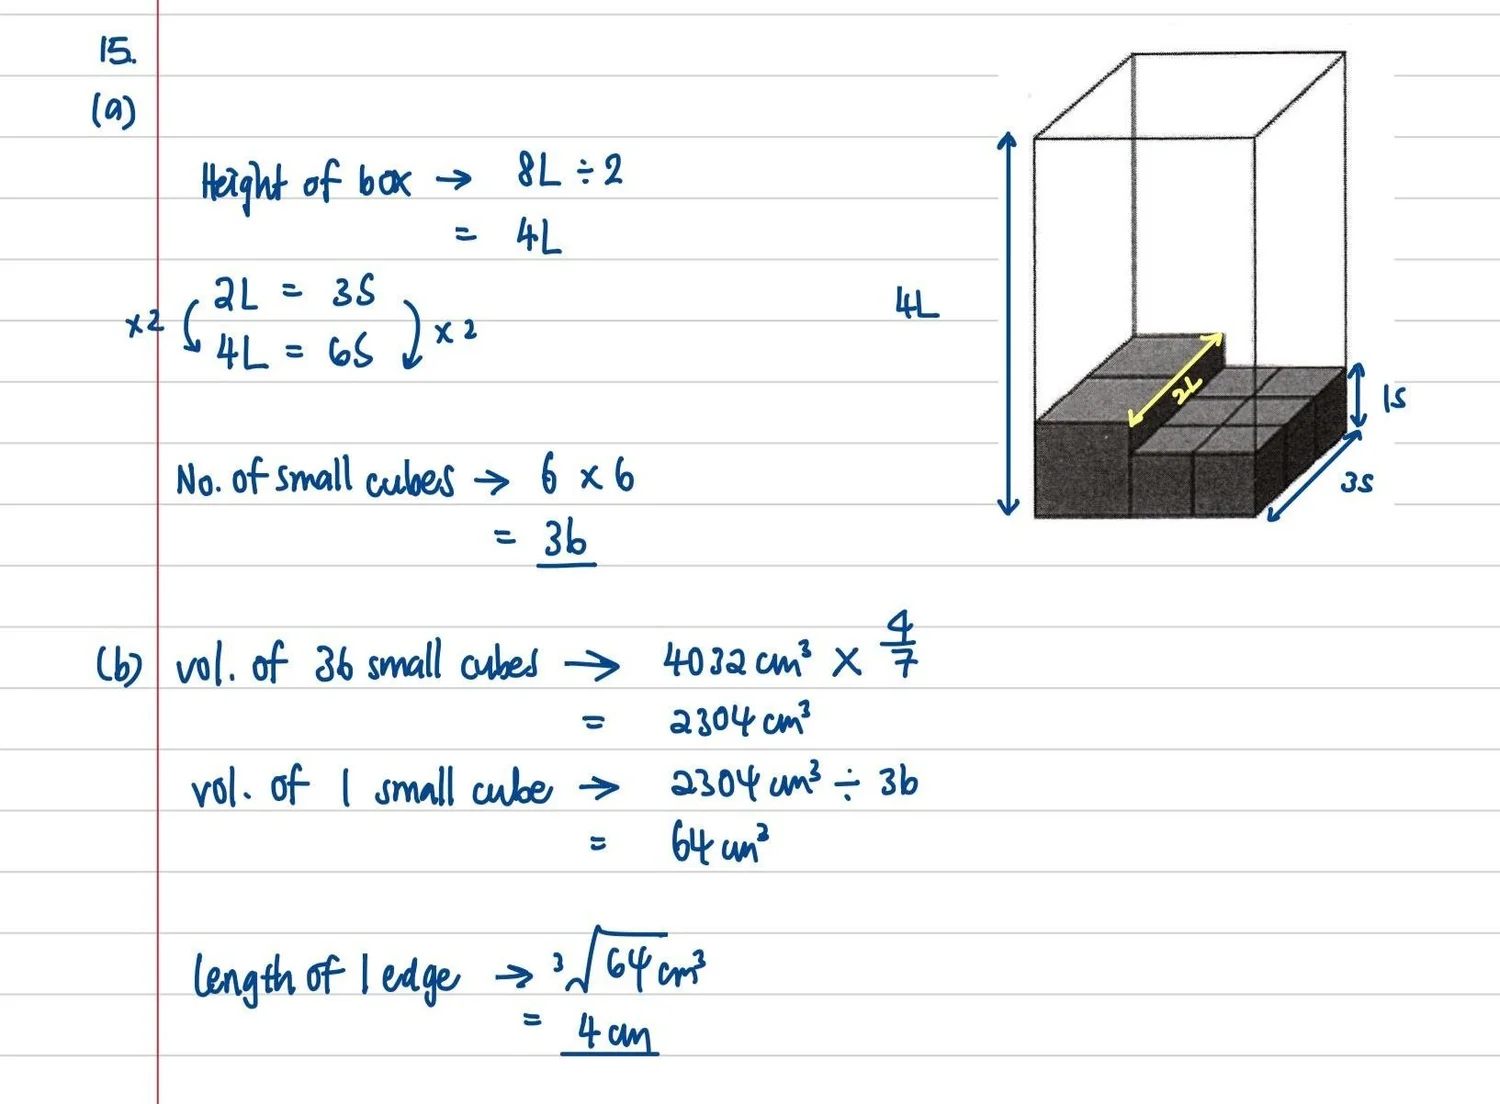 15.
(a)
Height of box → 8L ÷ 2
= 4L
×2 2L = 3S ×2
4L = 6S
No. of small cubes → 6 × 6
= 36
4L
2L
1S
3S
(b) vol. of 36 small cubes → 4032 cm³ × 4/7
= 2304 cm³
vol. of 1 small cube → 2304 cm³ ÷ 36
= 64 cm³
length of 1 edge → ³√64 cm³
= 4 cm